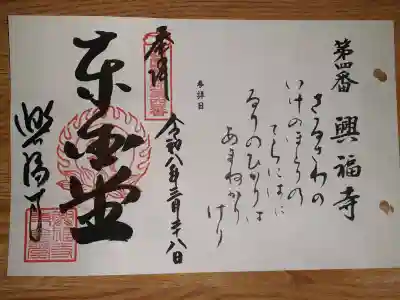 第四番 興福寺
さるさわの
いけのほとりの
てらにはに
るりのひかりは
あまねかりけり
参拝日
令和八年三月二十八日
奉拝
東金堂
興福寺